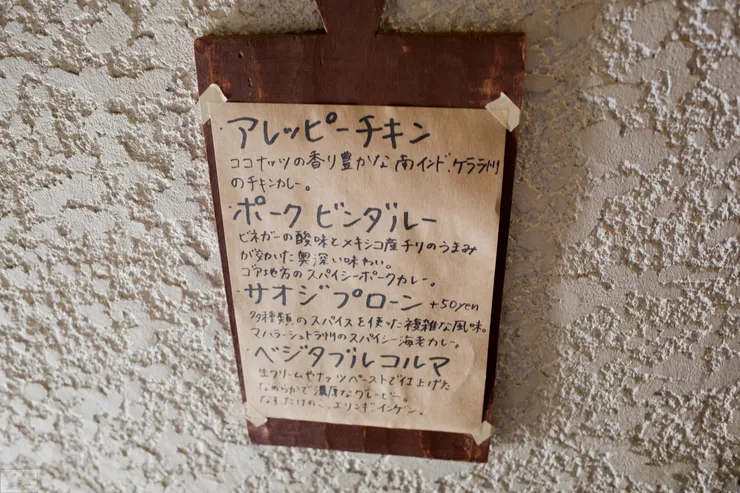 ・アレッピーチキン
ココナッツの香り豊かな南インド、ケララ州
のチキンカレー。
・ポーク ビンダルー
ビネガーの酸味とメキシコ産チリのうまみ
が効いた奥深い味わい。
ゴア地方のスパイシーポークカレー。
・サオジプローン +50yen
多種類のスパイスを使った複雑な風味。
マハラーシュトラ州のスパイシー海老カレー。
・ベジタブルコルマ
生クリームやナッツペーストで仕上げた
なめらかで濃厚なグレービー。
なす、たけのこ、エリンギ、インゲン。